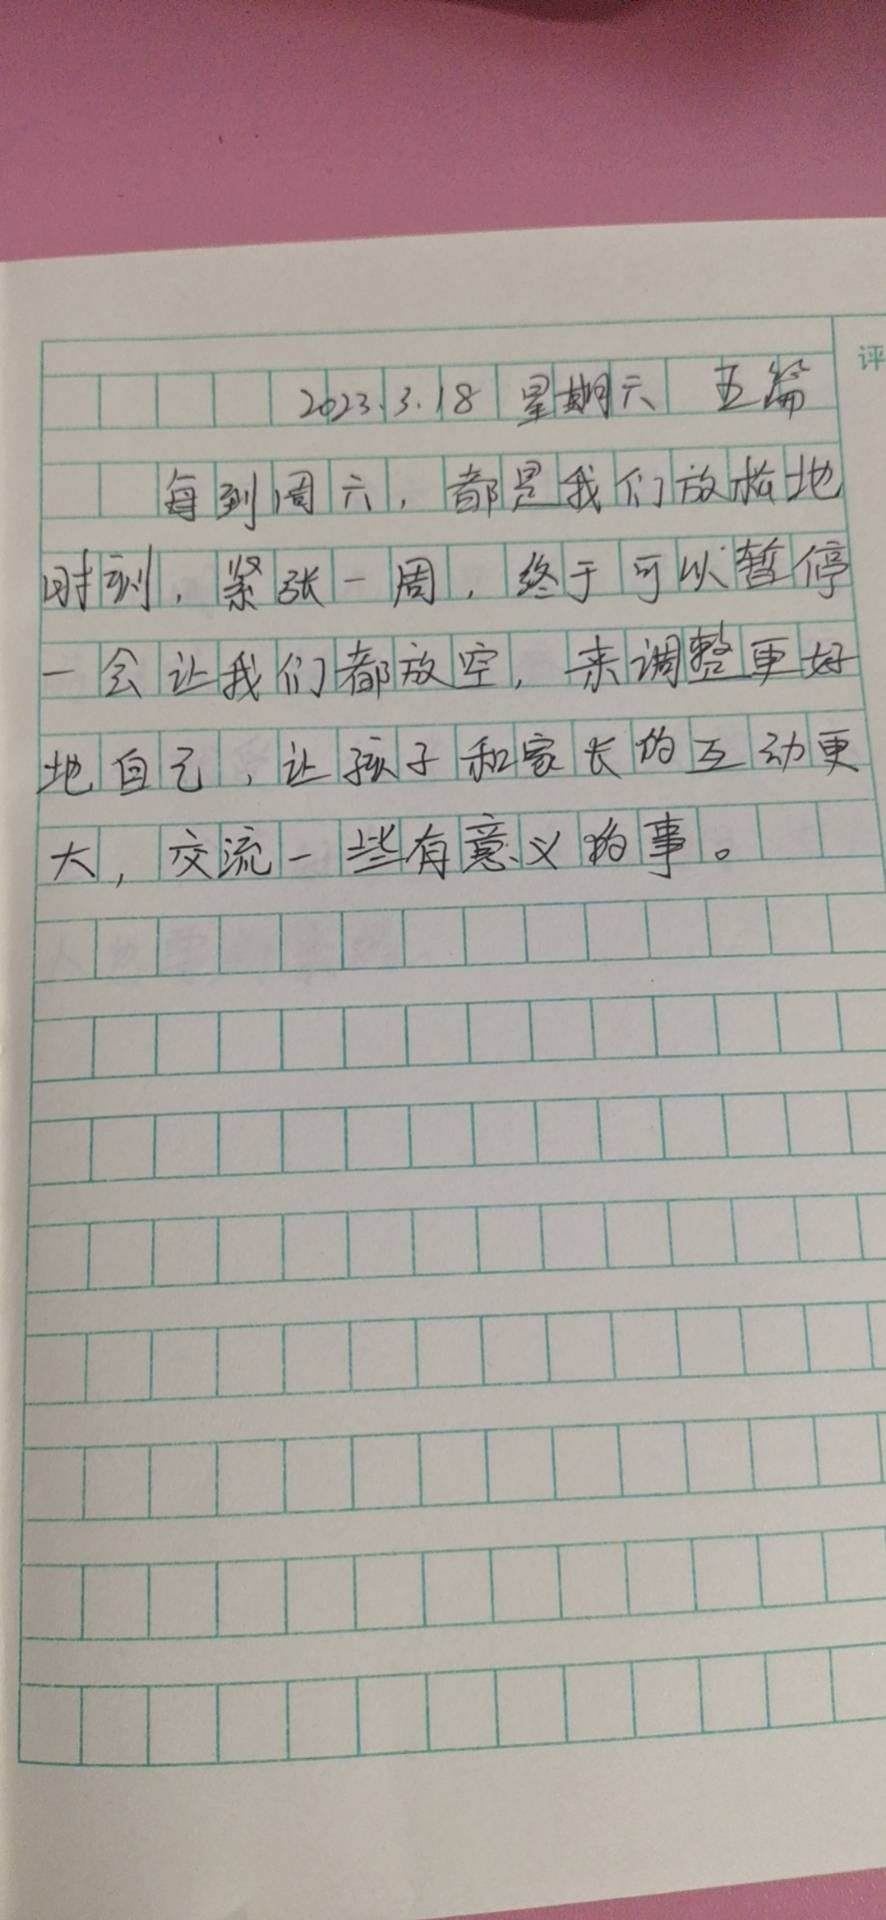 评
2023.3.18 星期六 五篇
每到周六，都是我们放松地
时刻，紧张一周，终于可以暂停
一会让我们都放空，来调整更好
地自己，让孩子和家长的互动更
大，交流一些有意义的事。